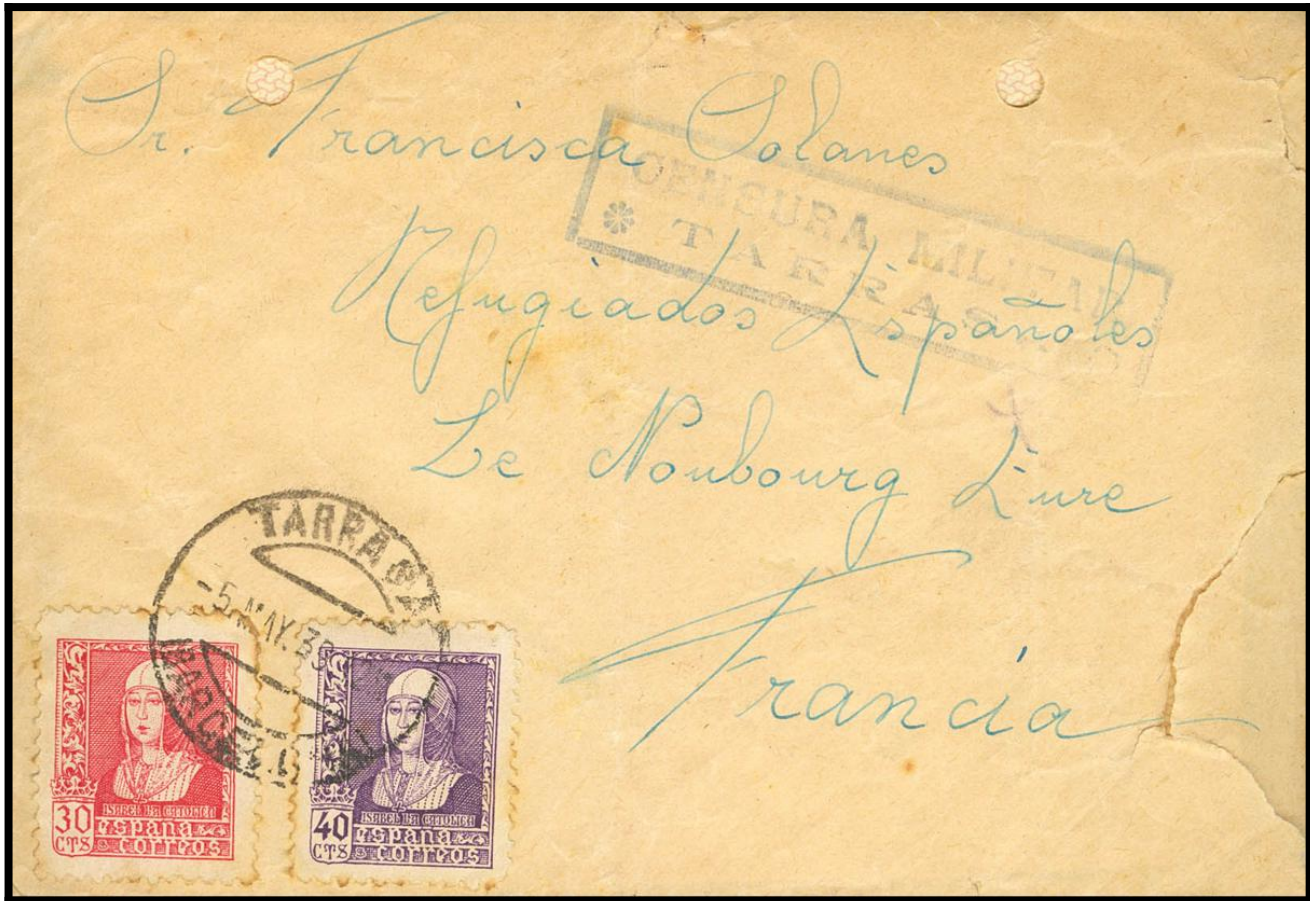 Sr. Francisca Solanes
CENSURA MILITAR
* TARRASA
Refugiados Españoles
Le Noubourg Eure
Francia
TARRASA
-5.MAY.39
(BARCELONA)
30
CTS
ISABEL LA CATOLICA
españa
correos
40
CTS
ISABEL LA CATOLICA
españa
correos